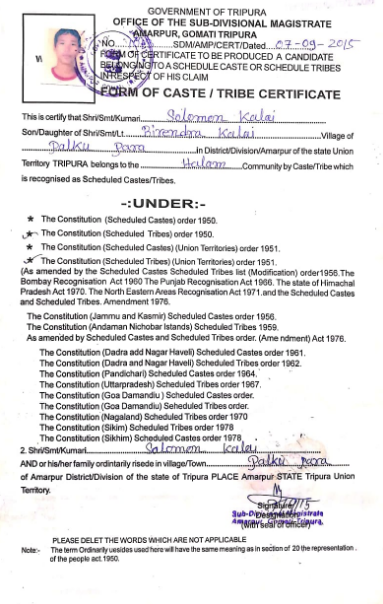 GOVERNMENT OF TRIPURA
OFFICE OF THE SUB-DIVISIONAL MAGISTRATE
AMARPUR, GOMATI TRIPURA
NO. SDM/AMP/CERT/Dated 07-09-2015
FORM OF CERTIFICATE TO BE PRODUCED A CANDIDATE
BELONGING TO A SCHEDULE CASTE OR SCHEDULE TRIBES
IN RESPECT OF HIS CLAIM
FORM OF CASTE / TRIBE CERTIFICATE
This is certify that Shri/Smt/Kumari Solomon Kalai
Son/Daughter of Shri/Smt/Lt. Birendra Kalai Village of
Dalku Para In District/Division/Amarpur of the state Union
Territory TRIPURA belongs to the Halam Community by Caste/Tribe which
is recognised as Scheduled Castes/Tribes.
-:UNDER:-
* The Constitution (Scheduled Castes) order 1950.
* The Constitution (Scheduled Tribes) order 1950.
* The Constitution (Scheduled Castes) (Union Territories) order 1951.
* The Constitution (Scheduled Tribes) (Union Territories) order 1951.
(As amended by the Scheduled Castes Scheduled Tribes list (Modification) order1956.The
Bombay Recognisation Act 1960 The Punjab Recognisation Act 1966. The state of Himachal
Pradesh Act 1970. The North Eastern Areas Recognisation Act 1971.and the Scheduled Castes
and Scheduled Tribes. Amendment 1976.
The Constitution (Jammu and Kasmir) Scheduled Castes order 1956.
The Constitution (Andaman Nichobar Istands) Scheduled Tribes 1959.
As amended by Scheduled Castes and Scheduled Tribes order. (Ame ndment) Act 1976.
The Constitution (Dadra add Nagar Haveli) Scheduled Castes order 1961.
The Constitution (Dadra and Nagar Haveli) Scheduled Tribes order 1962.
The Constitution (Pandichari) Scheduled Castes order 1964.
The Constitution (Uttarpradesh) Scheduled Tribes order 1967.
The Constitution (Goa Damandiu ) Scheduled Castes order.
The Constitution (Goa Damandiu) Seheduled Tribes order.
The Constitution (Nagaland) Scheduled Tribes order 1970
The Constitution (Sikim) Scheduled Tribes order 1978
The Constitution (Sikhim) Scheduled Castes order 1978
2. Shri/Smt/Kumari Salomon Kalai
AND or his/her family ordintarily risede in village/Town Dalku Para
of Amarpur District/Division of the state of Tripura PLACE Amarpur STATE Tripura Union
Territory.
Signature
Designation
Sub-Divisional Magistrate
(With seal of officer)
Amarpur, Gomati Tripura.
PLEASE DELET THE WORDS WHICH ARE NOT APPLICABLE
Note:- The term Ordinarily uesides used here will have the same meaning as in section of 20 the representation .
of the people act.1950.